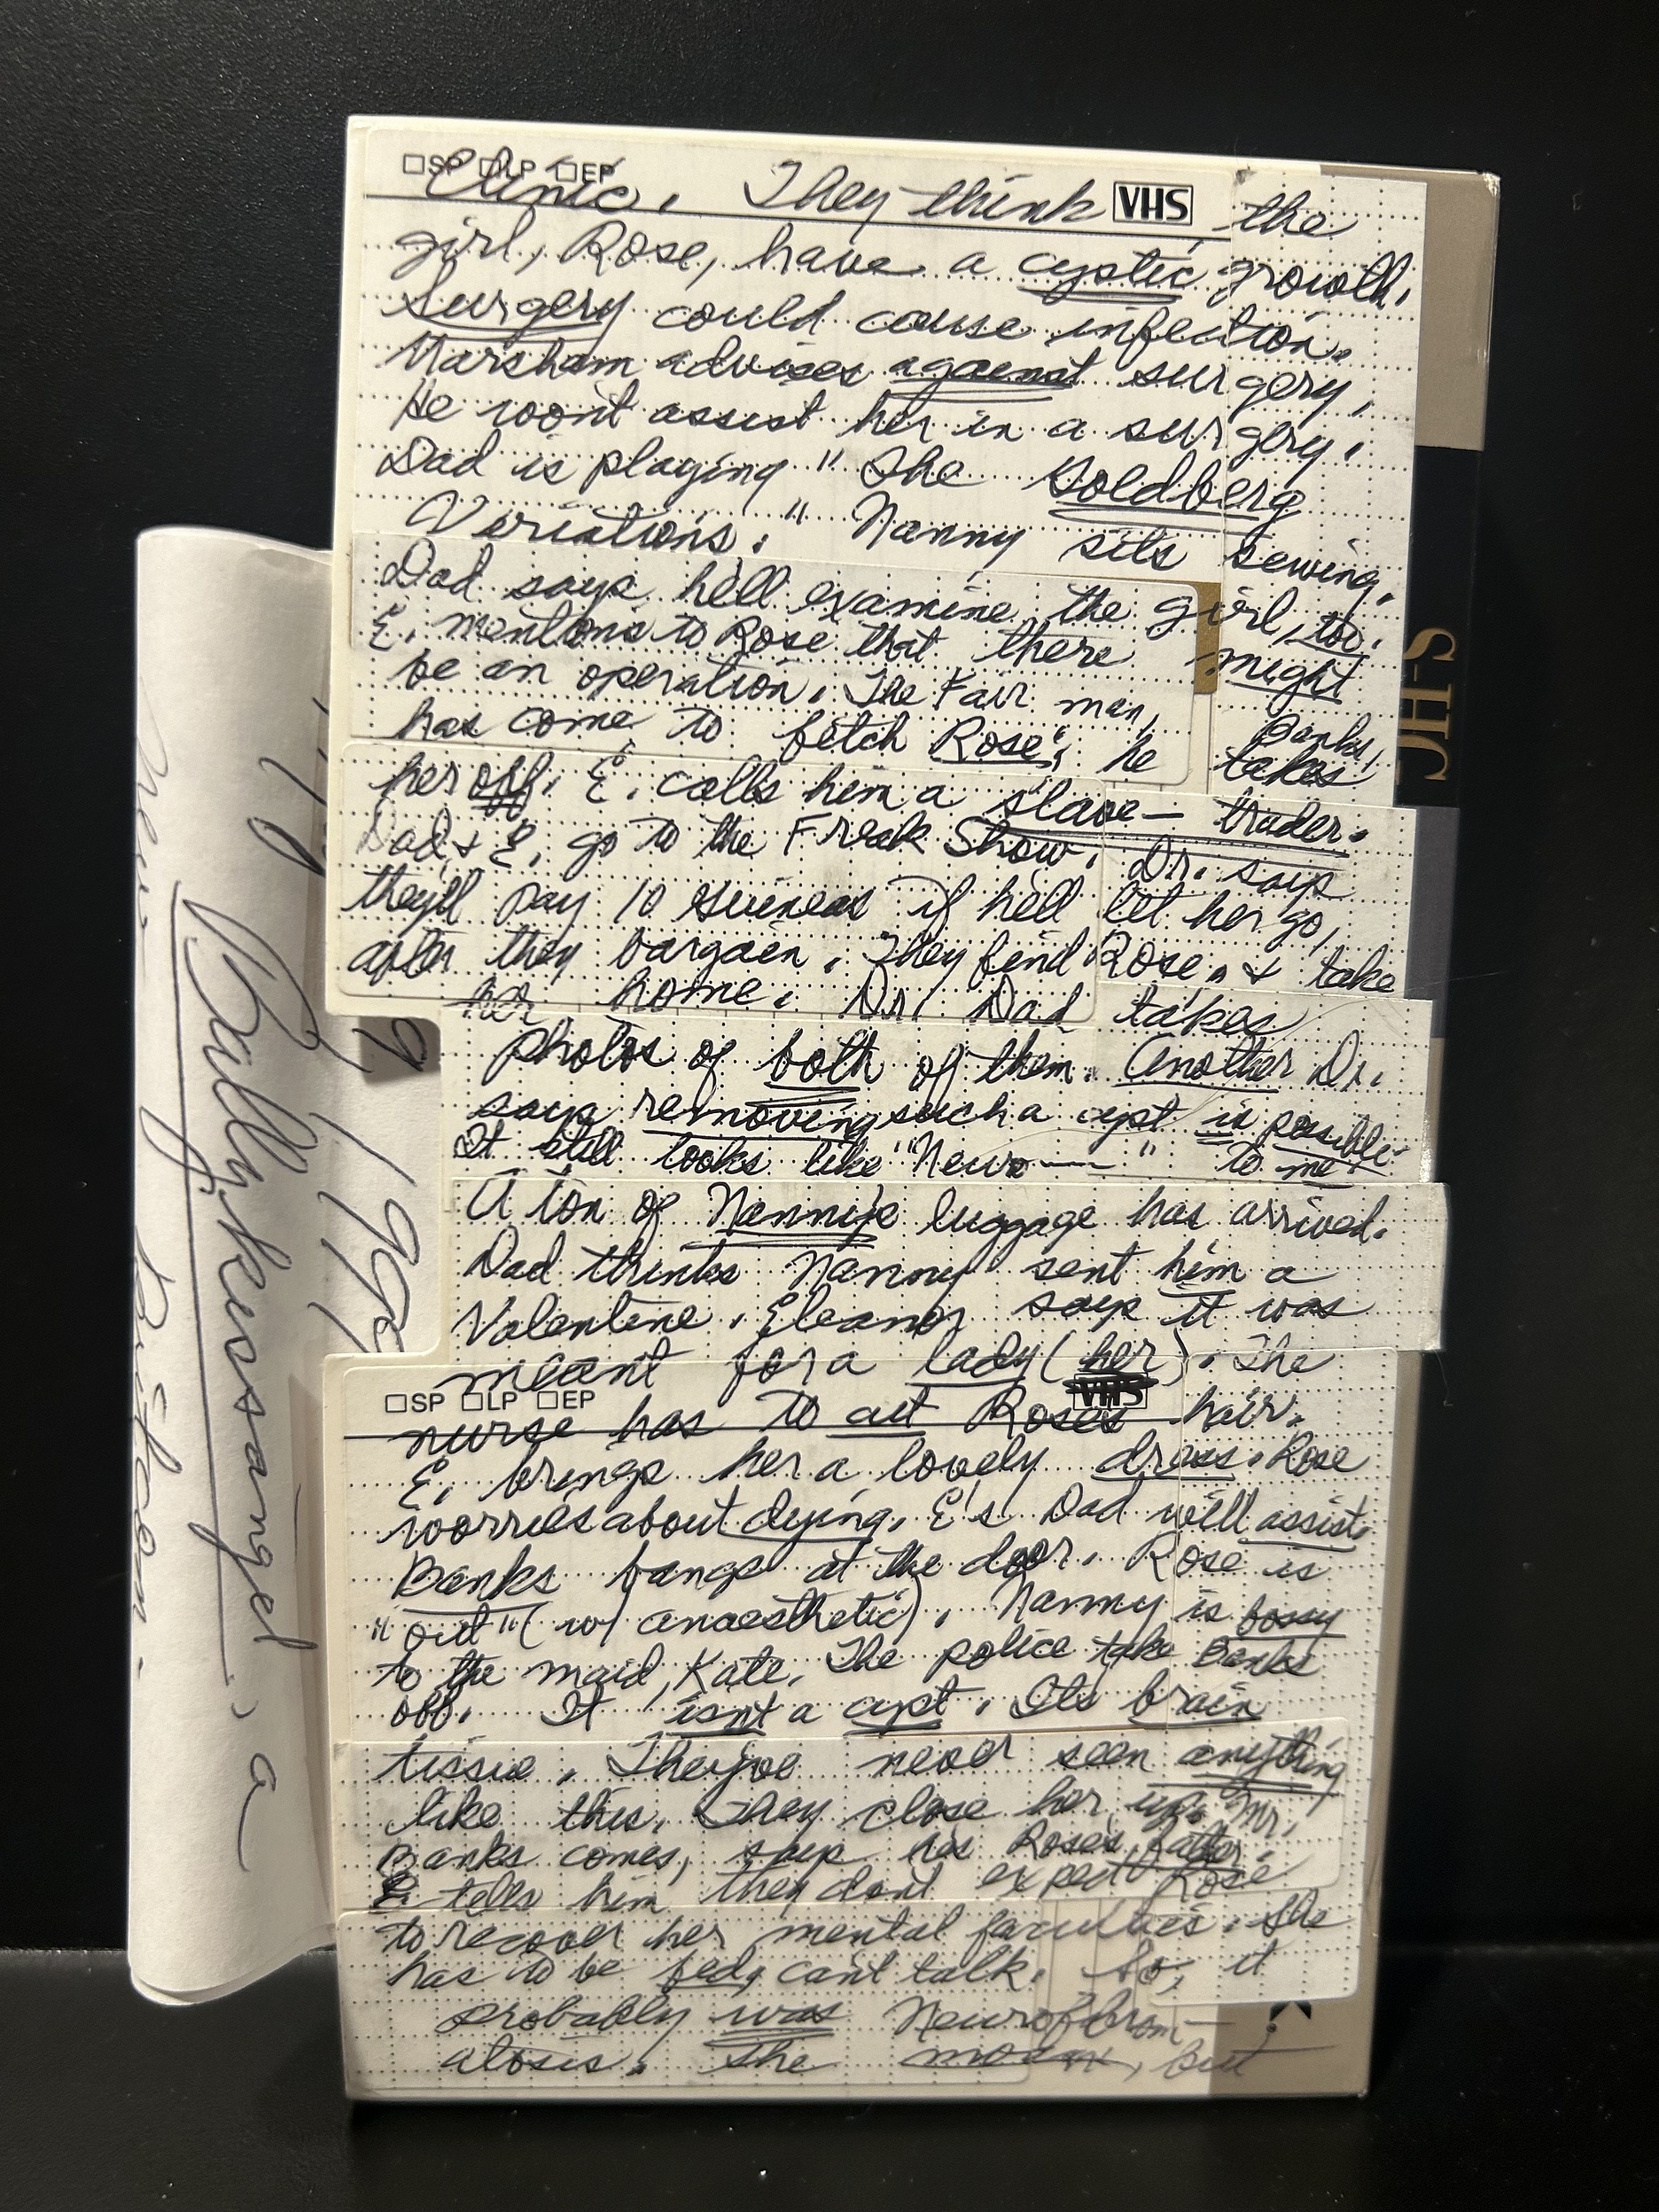 □SP □LP □EP
Clinic. They think VHS the
girl, Rose, have a cystic growth.
Surgery could cause infection.
Marsham advises against surgery.
He won't assist her in a surgery.
Dad is playing "The Goldberg
Variations." Nanny sits sewing.
Dad says he'll examine the girl, too.
E. mentions to Rose that there might
be an operation. The Fair man, Banks,
has come to fetch Rose; he takes
her off. E. calls him a slave-trader.
Dad & E. go to the Freak Show. Dr. says
they'll pay 10 Guineas if he'll let her go,
after they bargain. They find Rose, & take
her home. Dr. Dad takes
photos of both of them. Another Dr.
says removing such a cyst is possible.
It still looks like "Neuro——" to me
A ton of Nanny's luggage has arrived.
Dad thinks Nanny sent him a
Valentine. Eleanor says it was
meant for a lady (her). The
□SP □LP □EP VHS
nurse has to cut Rose's hair.
E. brings her a lovely dress. Rose
worries about dying. E's Dad will assist.
Banks bangs at the door. Rose is
"out" (w/ anaesthetic). Nanny is bossy
to the maid, Kate. The police take Banks
off. It isn't a cyst. Its brain
tissue. They've never seen anything
like this. They close her up. Mr.
Banks comes, says he's Rose's father.
E. tells him they don't expect Rose
to recover her mental faculties. She
has to be fed, can't talk. So, it
probably was Neurofibrom-
atosis. The but
JHS
1999
Billykissangel, a
new Britcom.